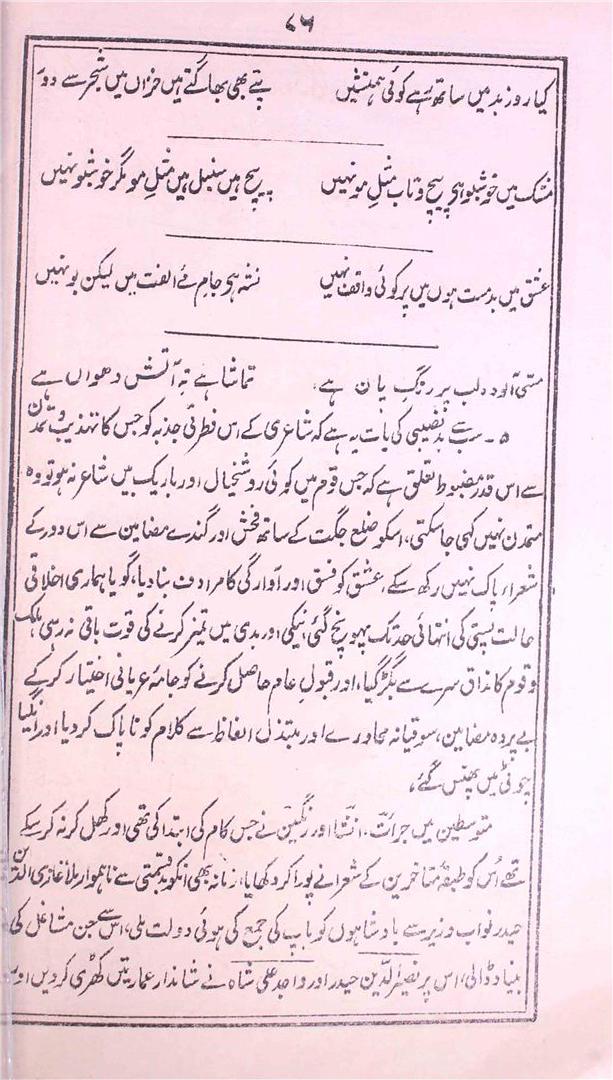 ۸۶
کیا روز بد میں ساتھ رہے کوئی ہمنشیں پتے بھی بھاگتے ہیں خزاں میں شجر سے دور
مشک میں خوشبو ہی پیچ و تاب مثلِ مو نہیں پیچ ہیں سنبل میں مثلِ مو مگر خوشبو نہیں
عشق میں بدمست ہوں میں پر کوئی واقف نہیں نشہ ہی جامِ مئے الفت میں لیکن بو نہیں
مسّی آلودہ لب پر رنگِ پان ہے، تماشا ہے تہِ آتش دھواں ہے
۵۔ سب سے بدنصیبی کی بات یہ ہے کہ شاعری کے اس فطرتی جذبہ کو جس کا تہذیب و تمدن
سے اس قدر مضبوط تعلق ہے کہ جس قوم میں کوئی روشنخیال اور باریک بیں شاعر نہ ہو تو وہ
متمدن نہیں کہی جا سکتی، اسکو ضلع جگت کے ساتھ فحش اور گندے مضامین سے اس دور کے
شعراء پاک نہیں رکھ سکے، عشق کو فسق اور آوارگی کا مرادف بنا دیا، گویا ہماری اخلاقی
حالت پستی کی انتہائی حد تک پہونچ گئی، نیکی اور بدی میں تمیز کرنے کی قوت باقی نہ رہی، ملک
و قوم کا مذاق سرے سے بگڑ گیا، اور قبولِ عام حاصل کرنے کو جامۂ عریانی اختیار کر کے
بے پردہ مضامین، سوقیانہ محاورے اور مبتذل الفاظ سے کلام کو ناپاک کر دیا اور انگیا
چوٹی میں پھنس گئے،
متوسطین میں جرأت، انشا اور رنگین نے جس کام کی ابتدا کی تھی اور کھل کر نہ کر سکے
تھے اُس کو طبقۂ متاخرین کے شعرا نے پورا کر دکھایا، زمانہ بھی انکو بدقسمتی سے ناہموار ملا غازی الدین
حیدر نواب وزیر سے بادشاہوں کو باپ کی جمع کی ہوئی دولت ملی، اس سے جن مشاغل کی
بنیاد ڈالی، اس پر نصیر الدین حیدر اور واجد علی شاہ نے شاندار عمارتیں کھڑی کر دیں اور